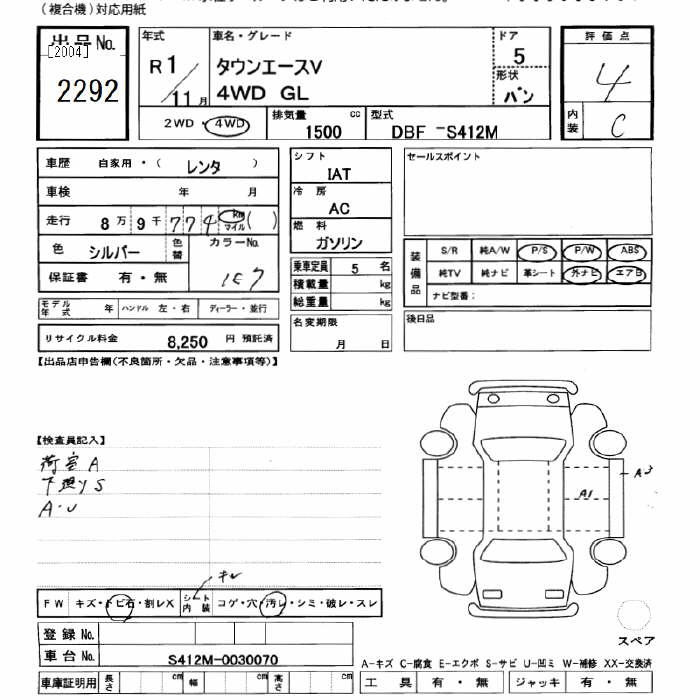 (複合機)対応用紙
出品No.
[2004]
2292
年式
R1/11月
車名・グレード
タウンエースV
4WD GL
ドア
5
形状
バン
評価点
4
内装
C
2WD・4WD
排気量
1500 cc
型式
DBF -S412M
車歴 自家用・( レンタ )
車検 年 月
走行 8万9千774 km マイル( )
色 シルバー 色替
カラーNo.
1E7
保証書 有・無
モデル年式 年 ハンドル 左・右 ディーラー・並行
リサイクル料金 8,250 円 預託済
シフト
IAT
冷房
AC
燃料
ガソリン
乗車定員 5 名
積載量 kg
総重量 kg
名変期限
月 日
セールスポイント
装備品
S/R 純A/W P/S P/W ABS
純TV 純ナビ 革シート 外ナビ エアB
ナビ型番:
後日品
【出品店申告欄(不良箇所・欠品・注意事項等)】
【検査員記入】
荷室A
下廻りS
A・U
A1
A3
キレ
FW キズ・トビ石・割レX シート内装 コゲ・穴・汚レ・シミ・破レ・スレ
登録No.
車台No. S412M-0030070
車庫証明用 長さ cm 幅 cm 高さ cm
スペア
A-キズ C-腐食 E-エクボ S-サビ U-凹ミ W-補修 XX-交換済
工具 有・無 ジャッキ 有・無